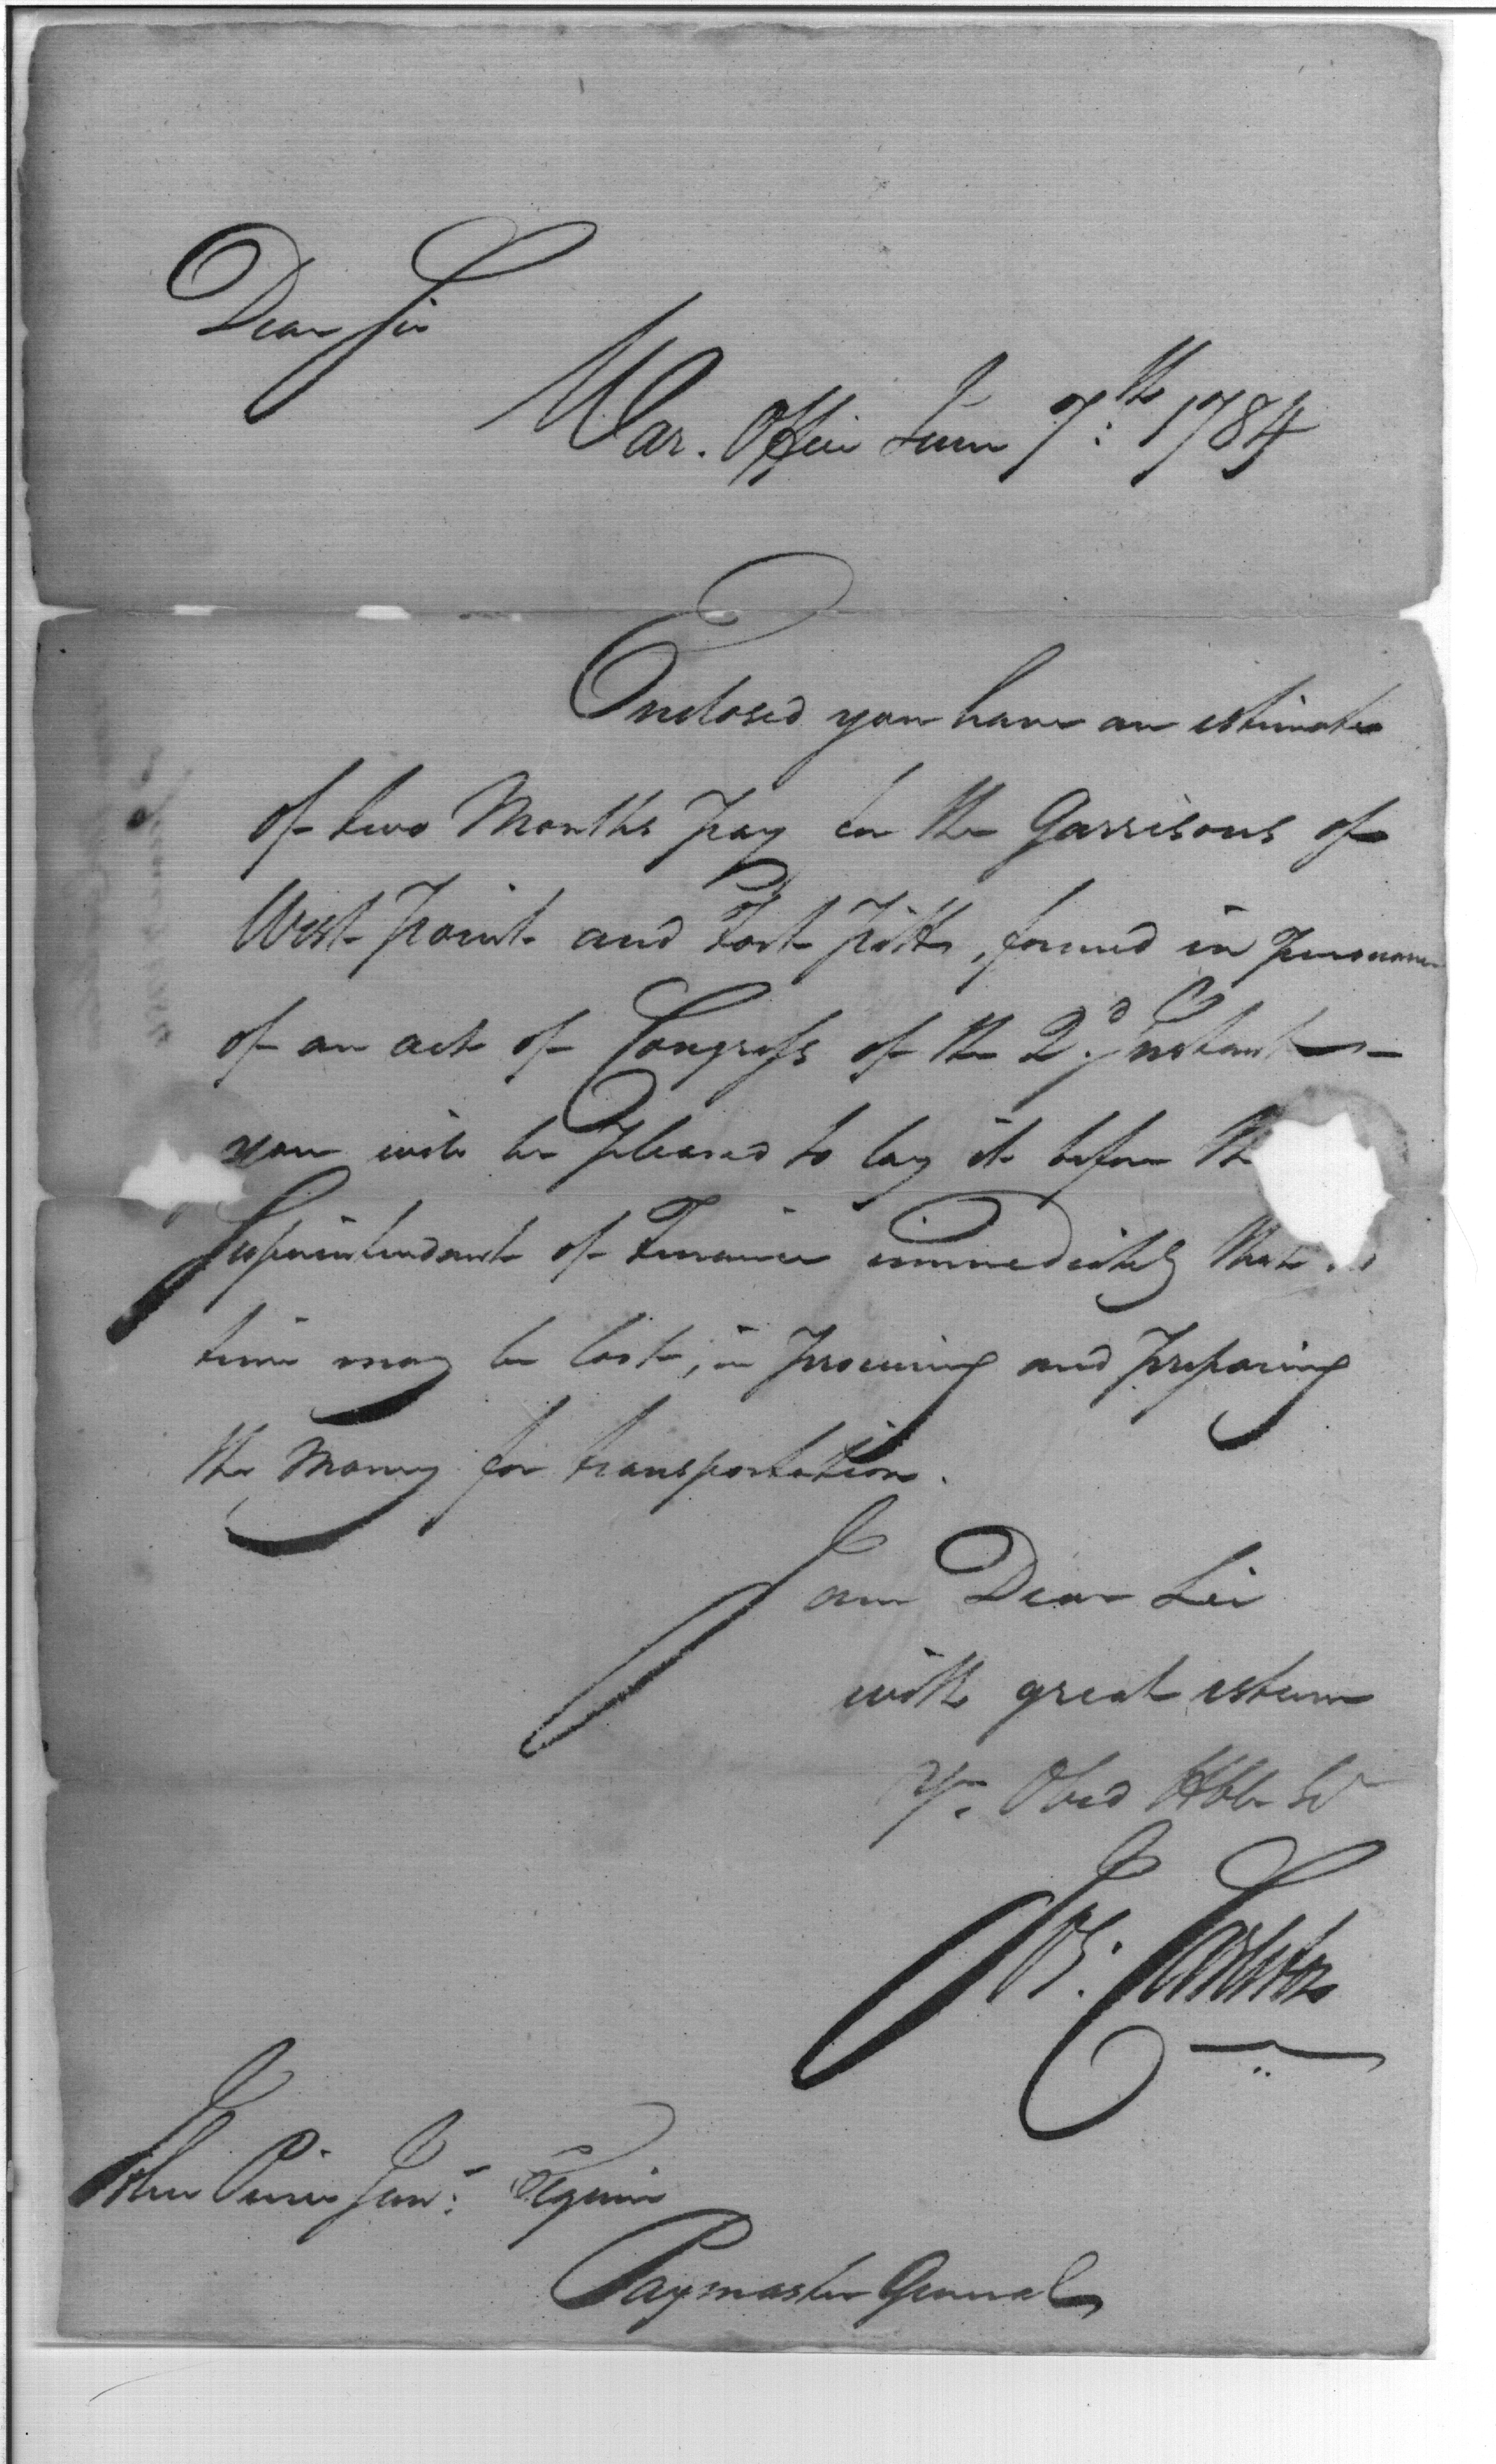 Dear Sir
War. Office June 7th: 1784
Enclosed you have an estimate
of two Months pay for the Garrisons of
West Point and Fort Pitt, formed in pursuance
of an act of Congress of the 2d. Instant —
you will be pleased to lay it before the
Superintendant of Finance immediately that
time may be lost, in procuring and preparing
the Money for transportation.
I am Dear Sir
with great esteem
Yr. Obed Hble St
Jos. Carleton
John Pierce Junr: Esquire
Paymaster General